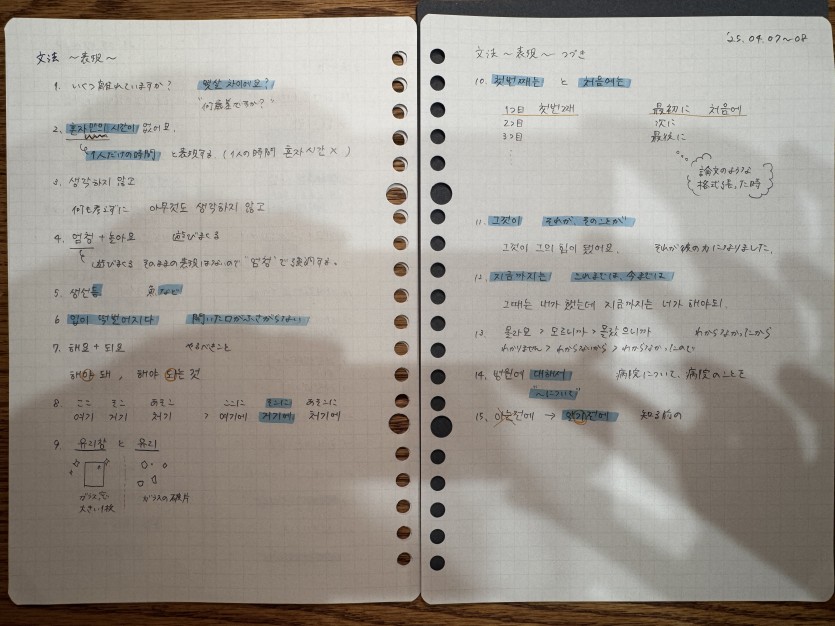 文法 〜表現〜
1. いくつ離れていますか? 몇살 차이에요?
"何歳差ですか?"
2. 혼자만의 시간이 없어요.
1人だけの時間 と表現する (1人の時間 혼자 시간 ×)
3. 생각하지 않고
何も考えずに 아무것도 생각하지 않고
4. 엄청 + 놀아요 遊びまくる
遊びまくる そのままの表現はないので"엄청"で強調する。
5. 생선등 魚など
6 입이 떡 벌어지다 開いた口がふさがらない
7. 해요 + 되요 やるべきこと
해야 돼, 해야 되는 것
8. ここ そこ あそこ ここに そこに あそこに
여기 거기 저기 > 여기에 거기에 저기에
9 유리창 と 유리
ガラス窓 ガラスの破片
大きい1枚
'25.04.07〜08
文法 〜表現〜 つづき
10. 첫번째는 と 처음에는
1つ目 첫번째 最初に 처음에
2つ目 次に
3つ目 最後に
論文のような
格式張った時
11. 그것이 それが、そのことが
그것이 그의 힘이 됐어요. それが彼の力になりました。
12. 지금까지는 これまでは、今までは
그때는 내가 했는데 지금까지는 너가 해야돼.
13. 몰라요 > 모르니까 > 몰랐으니까 わからなかったから
わかりません > わからないから > わからなかったので
14. 병원에 대해서 病院について、病院のことを
"〜について"
15. 아는전에 → 알기전에 知る前の